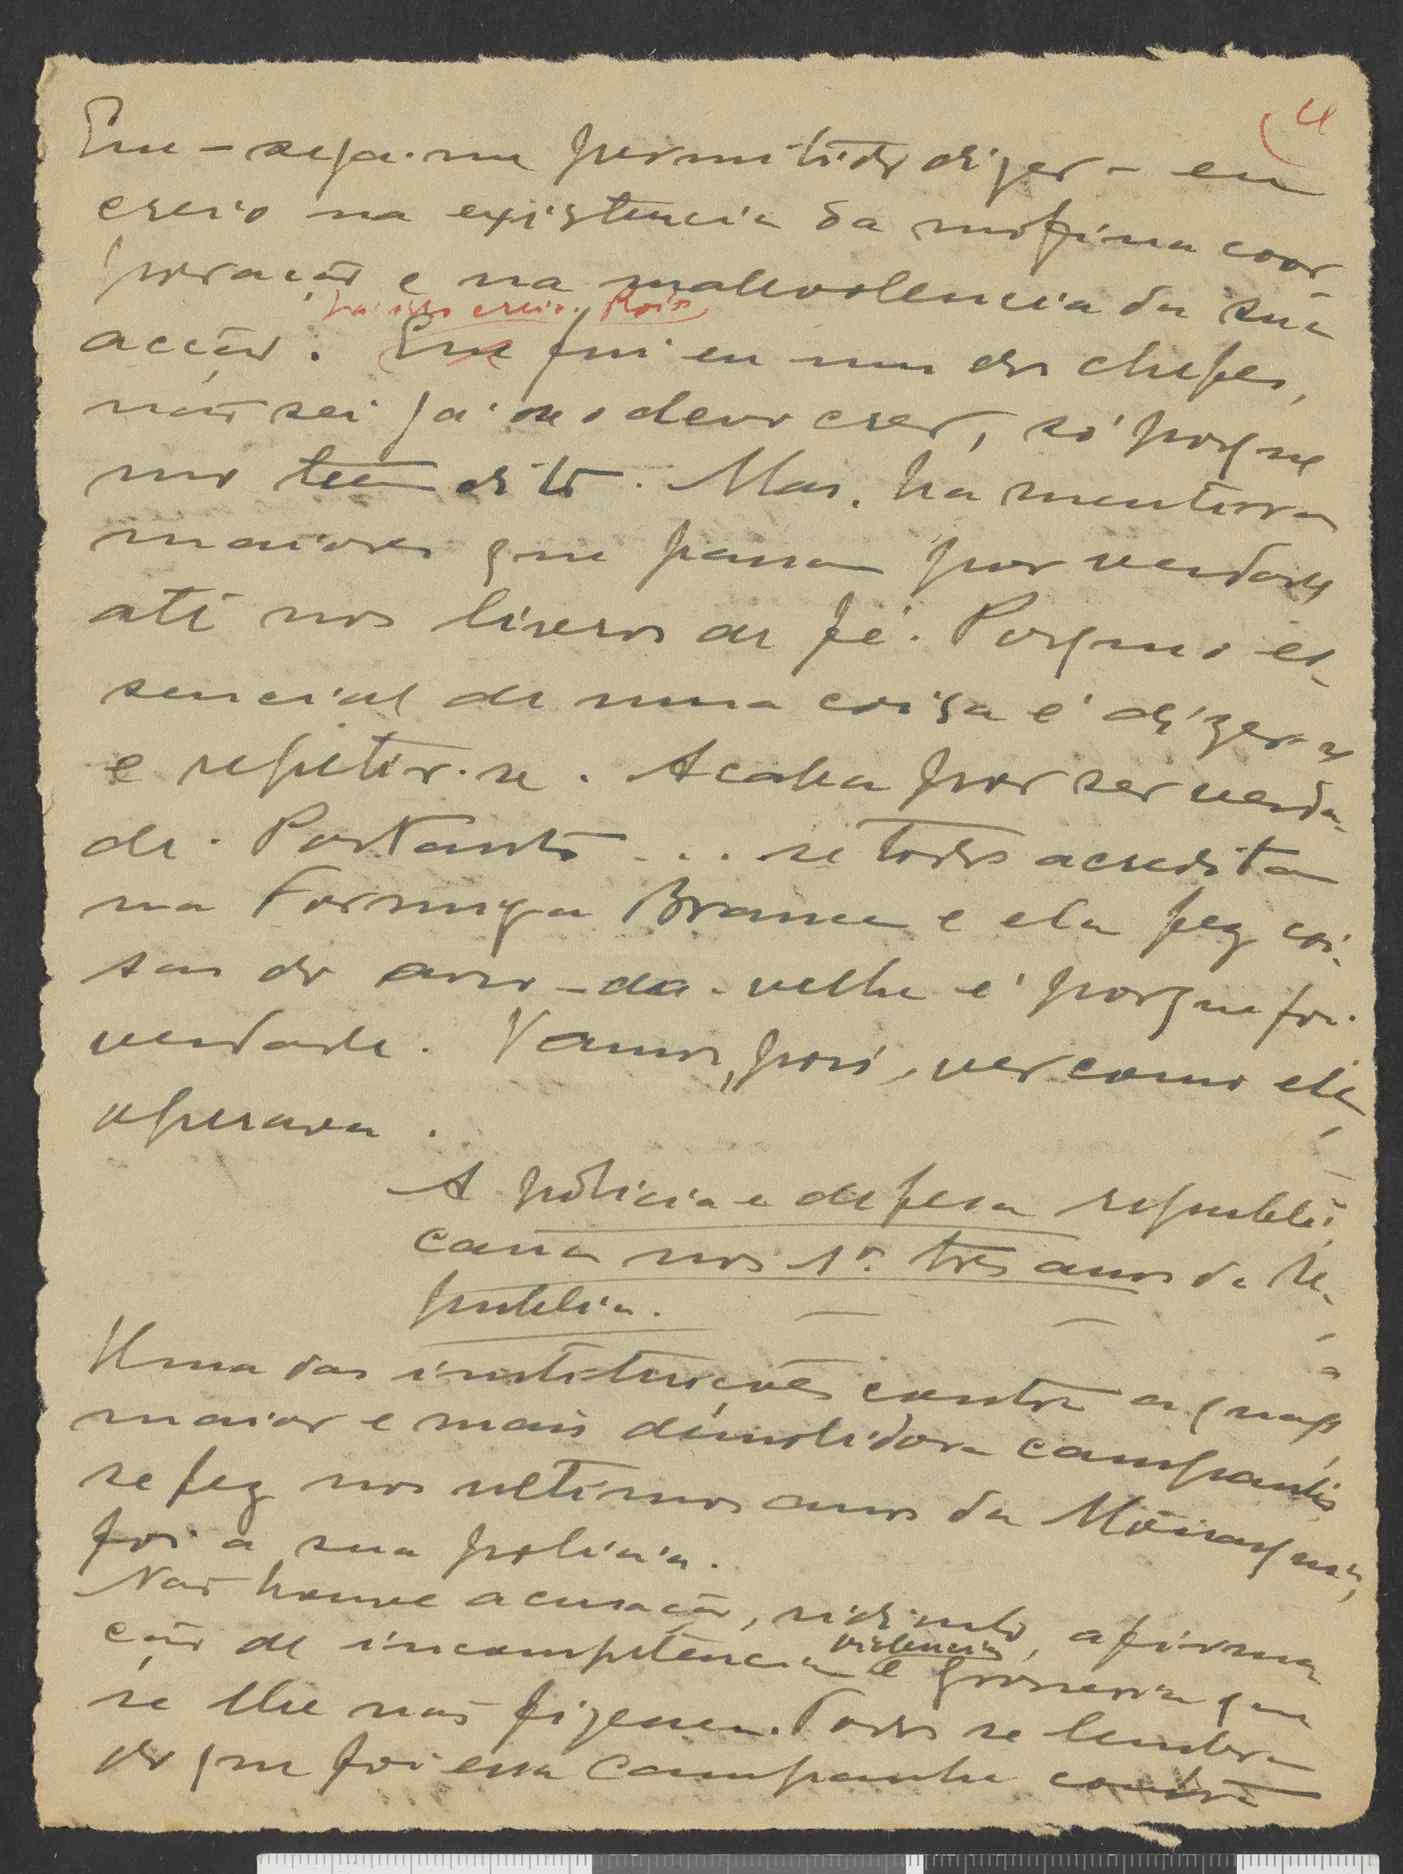 4
Eu – seja-me permitido dizer – eu
creio na existencia da mofina coor-
poração e na malevolencia da sua
já isso creio. Pois
acção. Eu fui eu um dos chefes,
não sei já se o devo crer, só porque
mo teem dito. Mas, ha mentiras
maiores que passam por verdades
até nos livros de fé. Porque o es-
sencial de uma coisa é dizer-se
e repetir-se. Acaba por ser verda-
de. Portanto ... se todos acreditam
na Formiga Branca e ela fez coi-
sas do arco-da-velha é porque foi
verdade. Vamos, pois, ver como ela
operava.
A policia e defesa republi-
cana nos 1os. tres anos da Re-
publica.
Uma das instituições contra as quaes
maior e mais demolidora campanha
se fez nos ultimos anos da Monarquia,
foi a sua policia.
Não houve acusação, ridiculo, afirma
violencia
ção de incompetencia e grosseria que
se lhe não fizesse. Todos se lembram
do que foi essa campanha contra